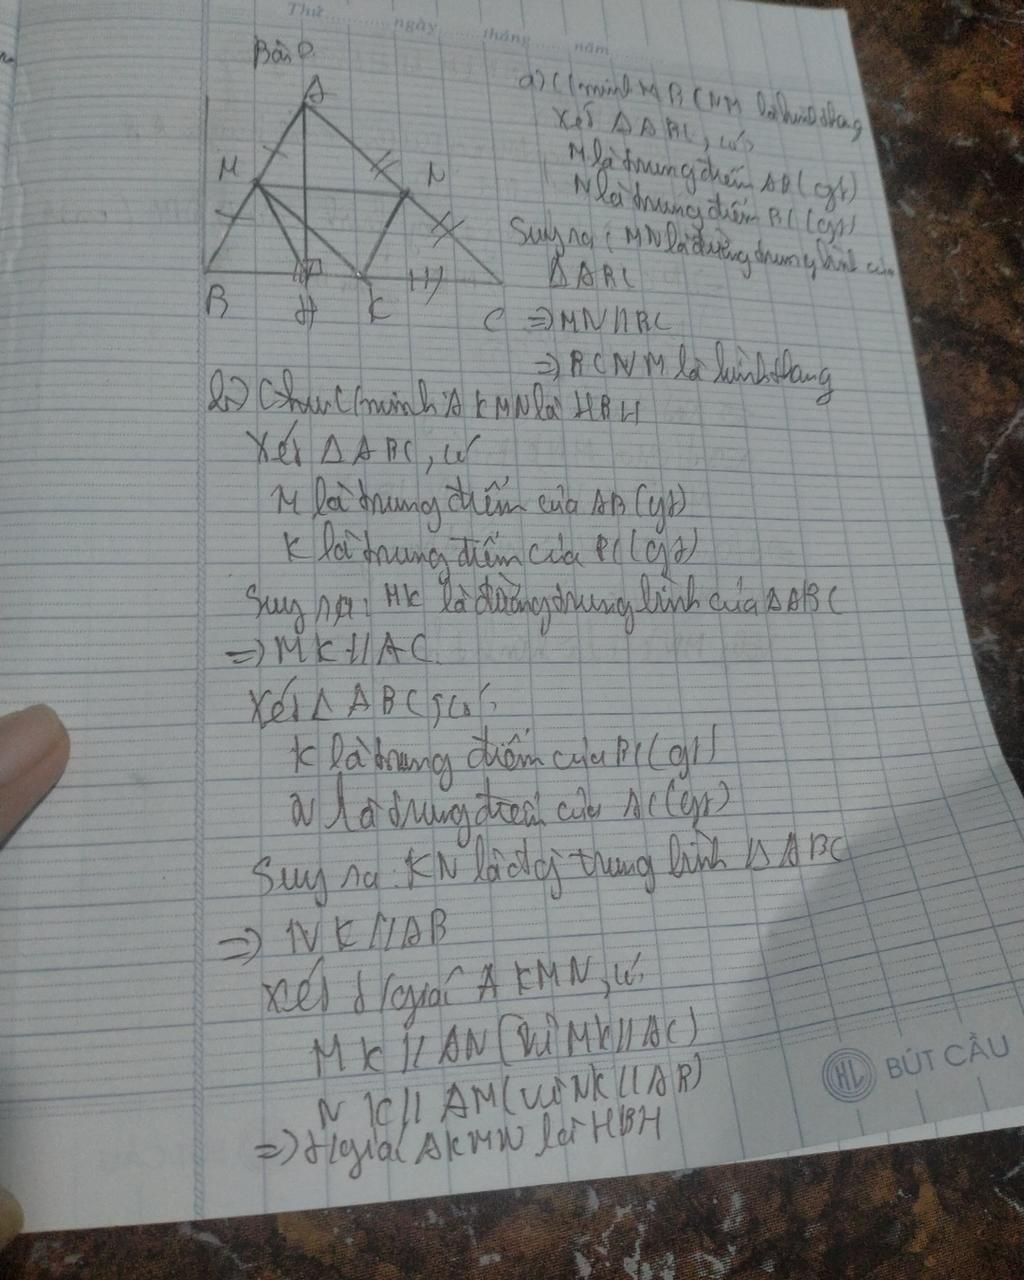 Thứ ngày tháng năm
Bài
A
M
N
B
H
K
C
a) C/minh BCNM là hình thang
Xét ΔABC, có:
M là trung điểm AB (gt)
N là trung điểm BC (gt)
Suy ra: MN là đường trung bình của
ΔABC
=> MN // BC
=> BCNM là hình thang
b) C/minh AKMN là HBH
Xét ΔABC, có
M là trung điểm của AB (gt)
K là trung điểm của BC (gt)
Suy ra: MK là đường trung bình của ΔABC
=> MK // AC
Xét ΔABC, có:
K là trung điểm của BC (gt)
N là trung điểm của AC (gt)
Suy ra: KN là đg trung bình ΔABC
=> NK // AB
Xét t/giác AKMN, có
MK // AN (vì MK // AC)
NK // AM (vì NK // AB)
=> t/giác AKMN là HBH
HL BÚT CẦU